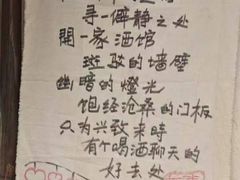 寻一僻静之处
開一家酒馆
斑驳的墙壁
幽暗的燈光
饱经沧桑的门板
只为兴致来時
有个喝酒聊天的
好去处